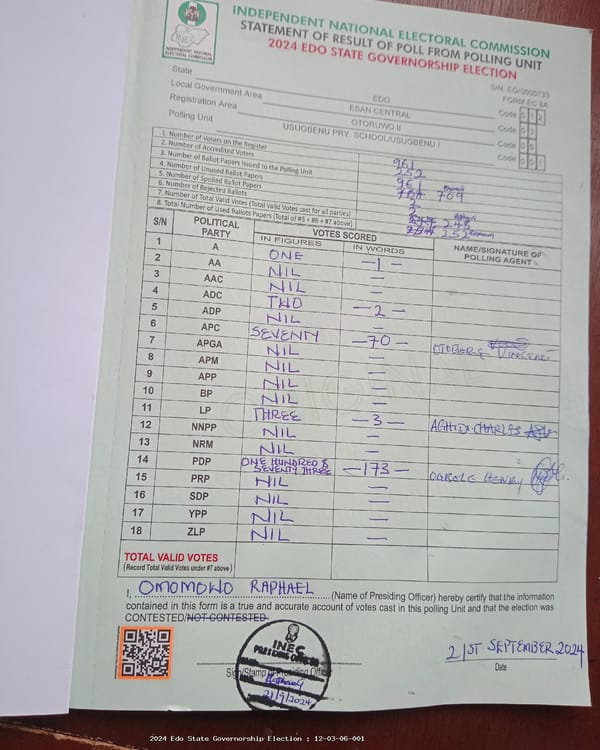 INDEPENDENT NATIONAL ELECTORAL COMMISSION
STATEMENT OF RESULT OF POLL FROM POLLING UNIT
2024 EDO STATE GOVERNORSHIP ELECTION
INEC
INDEPENDENT NATIONAL
ELECTORAL COMMISSION
S/N: EG/0000733
FORM EC 8A
State EDO Code 0 1 2
Local Government Area ESAN CENTRAL Code 0 3
Registration Area OTORUWO II Code 0 6
Polling Unit USUGBENU PRY. SCHOOL/USUGBENU I Code 0 0 1
1. Number of Voters on the Register 961
2. Number of Accredited Voters 252
3. Number of Ballot Papers Issued to the Polling Unit 961
4. Number of Unused Ballot Papers 709
5. Number of Spoiled Ballot Papers
6. Number of Rejected Ballots
7. Number of Total Valid Votes (Total Valid Votes cast for all parties) 248
8. Total Number of Used Ballots Papers (Total of #5 + #6 + #7 above) 252
S/N POLITICAL PARTY VOTES SCORED NAME/SIGNATURE OF POLLING AGENT
IN FIGURES IN WORDS
1 A ONE -1-
2 AA NIL —
3 AAC NIL —
4 ADC TWO -2-
5 ADP NIL —
6 APC SEVENTY -70- VINCENT
7 APGA NIL —
8 APM NIL —
9 APP NIL —
10 BP NIL —
11 LP THREE -3- CHARLES
12 NNPP NIL —
13 NRM NIL —
14 PDP ONE HUNDRED & SEVENTY THREE -173- OGBOLE HENRY
15 PRP NIL —
16 SDP NIL —
17 YPP NIL —
18 ZLP NIL —
TOTAL VALID VOTES
(Record Total Valid Votes under #7 above)
I, OMOMOWO RAPHAEL (Name of Presiding Officer) hereby certify that the information
contained in this form is a true and accurate account of votes cast in this polling Unit and that the election was
CONTESTED/NOT CONTESTED.
INEC
PRESIDING OFFICER
21/9/2024
Sign/Stamp of Presiding Officer
21ST SEPTEMBER 2024
Date
2024 Edo State Governorship Election : 12-03-06-001